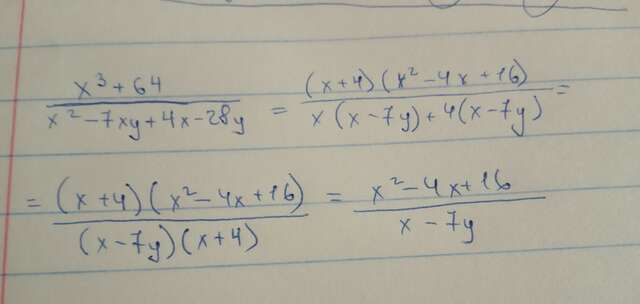 x³+64 / x²-7xy+4x-28y = (x+4)(x²-4x+16) / x(x-7y)+4(x-7y) =
= (x+4)(x²-4x+16) / (x-7y)(x+4) = x²-4x+16 / x-7y